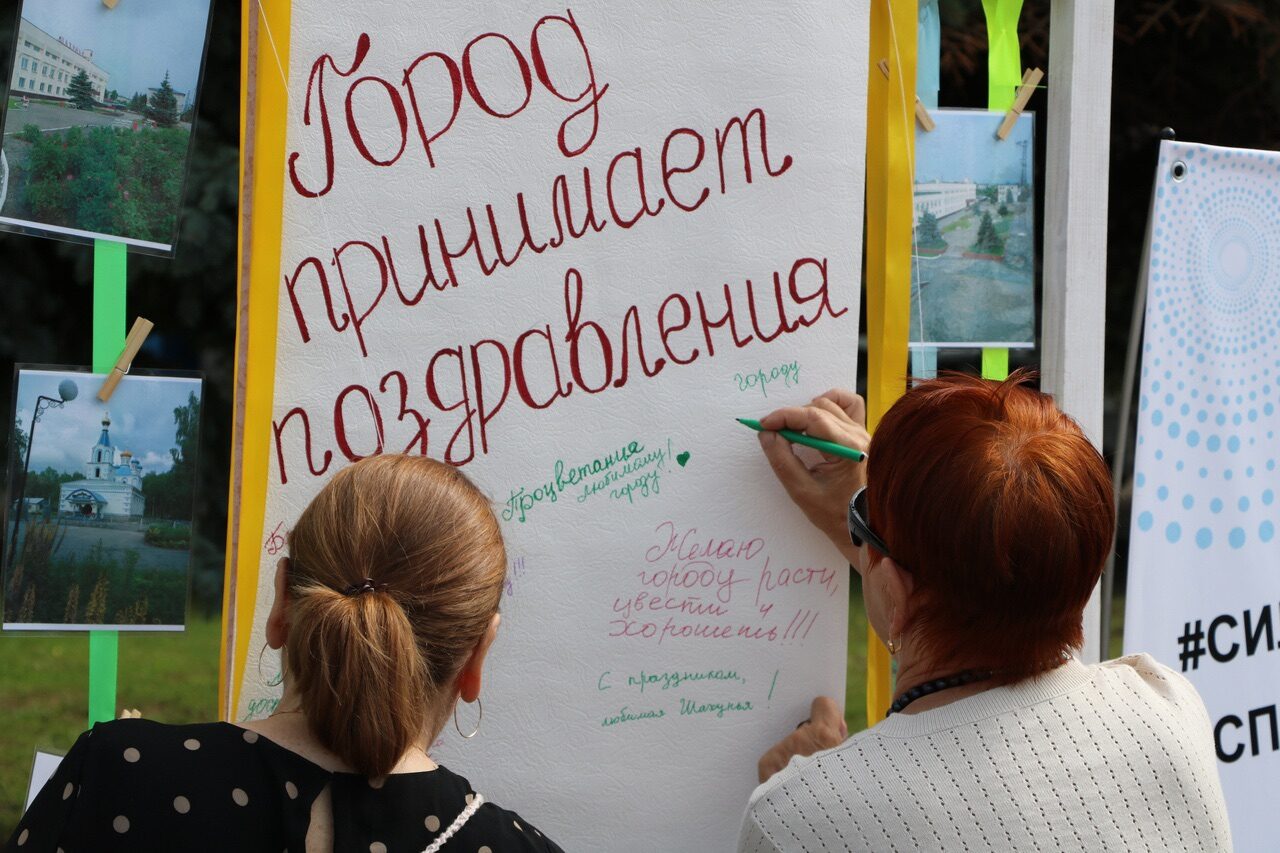 Город
принимает
поздравления
городу
Процветания
любимому
городу!
Желаю
городу расти,
цвести и
хорошеть!!!
С праздником,
любимая Шахунья!
#СИ
СП